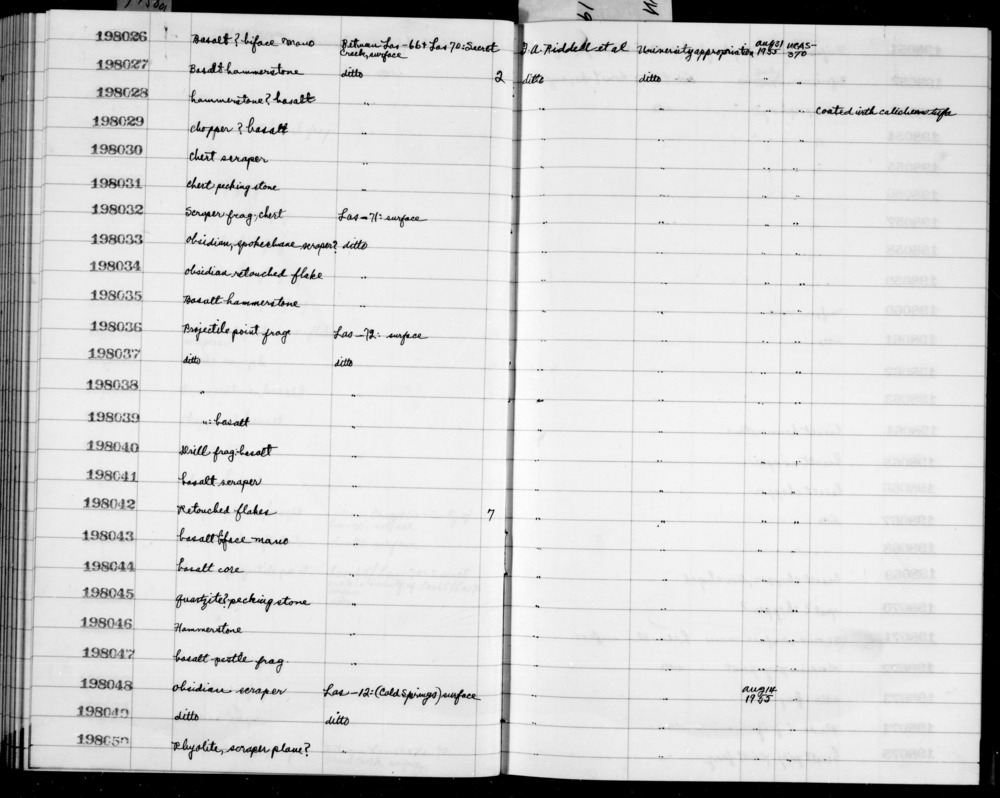 198026 Basalt? biface mano Between Las-66 & Las 70: Secret Creek, surface F. A. Riddell et al University appropriation aug 31 1955 UCAS-370
198027 Basalt hammerstone ditto 2 ditto ditto " "
198028 hammerstone? basalt " " " " " coated with caliche
198029 chopper? basalt " " " " "
198030 chert scraper " " " " "
198031 chert pecking stone " " " " "
198032 Scraper frag; chert Las-71: surface " " " "
198033 obsidian, spokeshave scraper? ditto " " " "
198034 obsidian retouched flake " " " " "
198035 Basalt hammerstone " " " " "
198036 Projectile point frag Las-72: surface " " " "
198037 ditto ditto " " " "
198038 " " " " " "
198039 ": basalt " " " " "
198040 Drill frag: basalt " " " " "
198041 basalt scraper " " " " "
198042 Retouched flakes " 7 " " " "
198043 basalt biface mano " " " " "
198044 basalt core " " " " "
198045 quartzite? pecking stone " " " " "
198046 Hammerstone " " " " "
198047 basalt pestle frag. " " " " "
198048 obsidian scraper Las-12: (Cold Springs) surface " " aug 14 1955 "
198049 ditto ditto " " " "
198050 Rhyolite, scraper plane? " " " " "